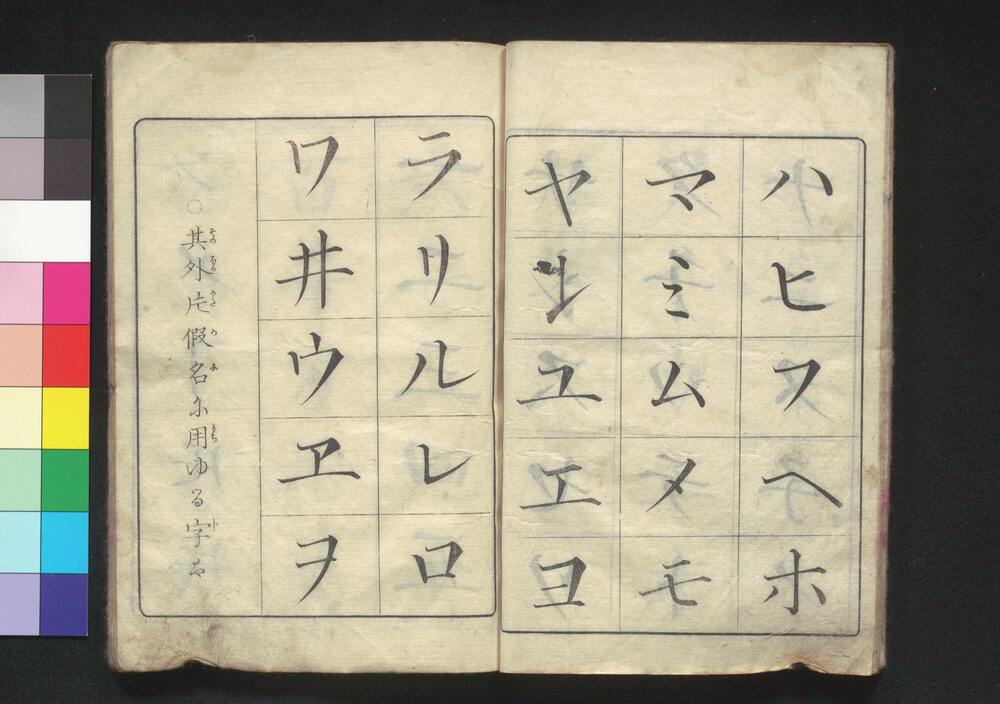 ハヒフヘホ
マミムメモ
ヤユエヨ
ラリルレロ
ワ井ウヱヲ
○其外片假名に用ゆる字は